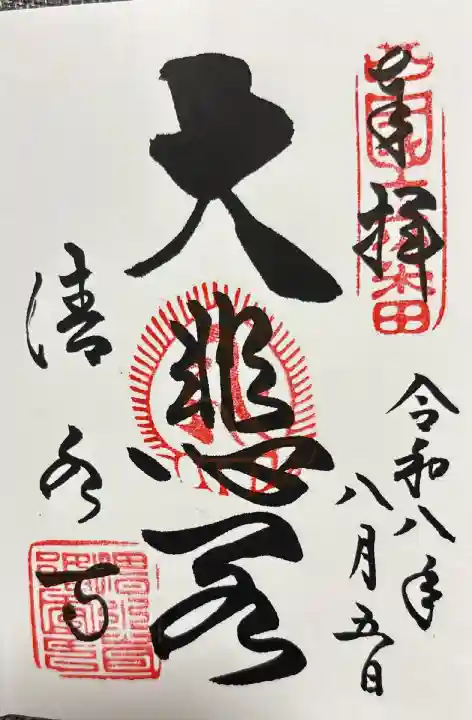 奉拝
令和八年
八月五日
大悲閣
清水寺